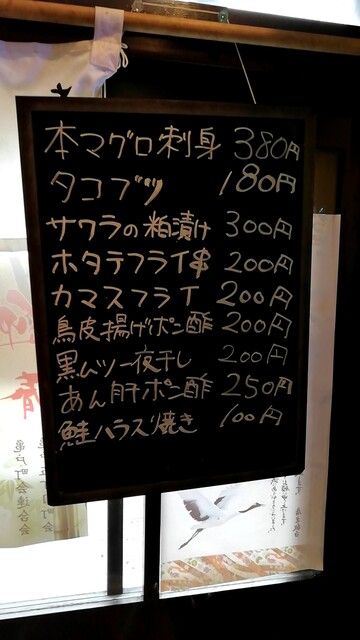 本マグロ刺身 380円
タコブツ 180円
サワラの粕漬け 300円
ホタテフライ串 200円
カマスフライ 200円
鳥皮揚げポン酢 200円
黒ムツ一夜干し 200円
あん肝ポン酢 250円
鮭ハラス焼き 100円
亀戸町会連合会